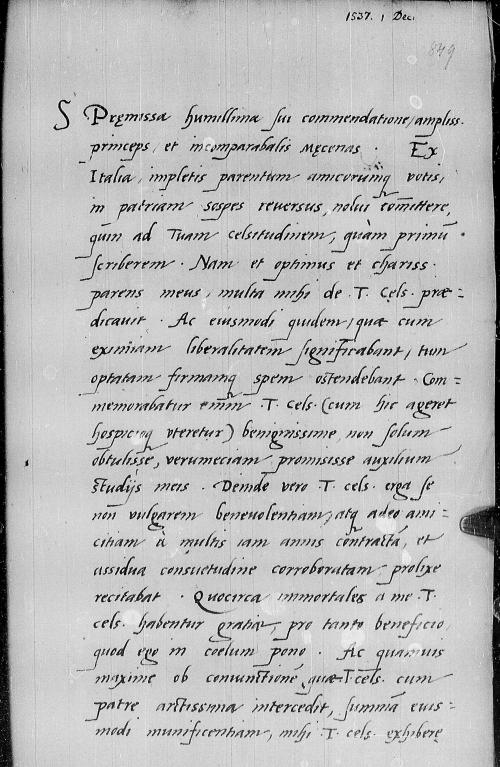 1537. 1 Dec.
849
S Pręmissa humillima sui commendatione, ampliss.
princeps, et incomparabalis męcenas. Ex
Italia, impletis parentum amicorumq votis,
in patriam sospes reversus, nolui com̃ittere,
quin ad Tuam celsitudinem, quàm primũ
scriberem. Nam et optimus et chariss.
parens meus, multa mihi de .T. Cels. præ=
dicavit. Ac eiusmodi quidem, quæ cum
eximiam liberalitatem significabant, tum
optatam firmamq spem ostendebant. Com=
memorabatur enim̃ .T. Cels. (cum hic ageret
hospicioq vteretur) benignissime, non solum
obtulisse, verumeciam promisisse auxilium
studijs meis. Deinde vero .T. cels. erga se
non vulgarem benevolentiam, atq adeo ami=
citiam à multis iam annis contractã, et
assidua consuetudine corroboratam, prolixe
recitabat. Quocirca immortales a me .T.
cels. habentur gratiæ, pro tanto beneficio,
quod ego in coelum pono. Ac quamuis
maxime ob coniunctionẽ, quæ T. cels. cum
patre arctissima intercedit, summã eius=
modi munificentiam, mihi .T. cels. exhiberę